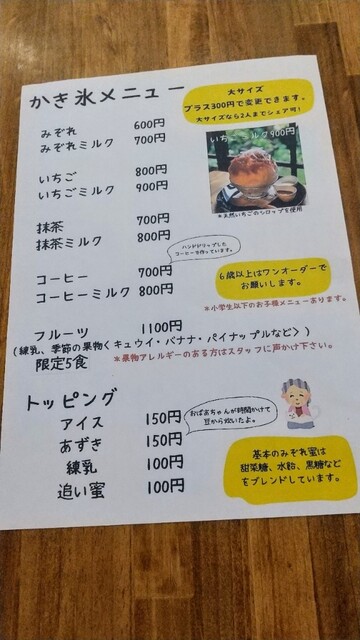 かき氷メニュー
大サイズ
プラス300円で変更できます。
大サイズなら2人までシェア可!
みぞれ 600円
みぞれミルク 700円
いちごミルク900円
いちご 800円
いちごミルク 900円
*天然いちごのシロップを使用
抹茶 700円
抹茶ミルク 800円
ハンドドリップした
コーヒーで作っています。
コーヒー 700円
コーヒーミルク 800円
6歳以上はワンオーダーで
お願いします。
*小学生以下のお子様メニューあります。
フルーツ 1100円
(練乳、季節の果物くキュウイ・バナナ・パイナップルなど>)
限定5食 *果物アレルギーのある方はスタッフに声かけ下さい。
トッピング
アイス 150円
おばあちゃんが時間かけて
豆から炊いたよ。
あずき 150円
練乳 100円
追い蜜 100円
基本のみぞれ蜜は
甜菜糖、水飴、黒糖など
をブレンドしています。